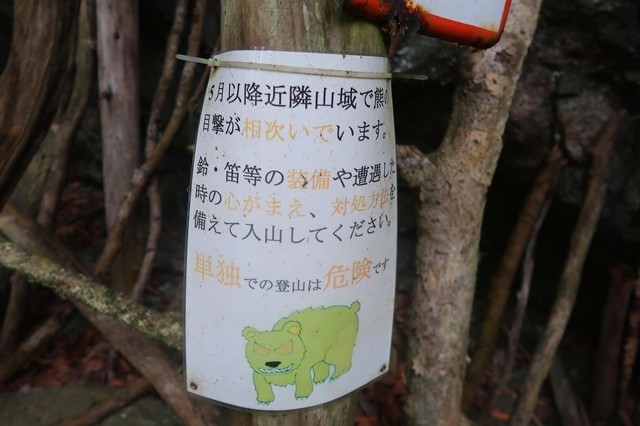 5月以降近隣山域で熊の
目撃が相次いでいます。
鈴・笛等の装備や遭遇した
時の心がまえ、対処方法を
備えて入山してください。
単独での登山は危険です